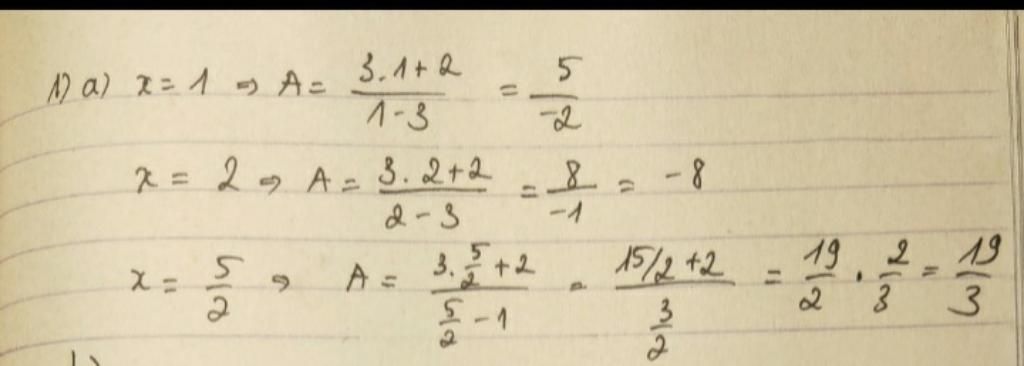 1) a) x = 1 ⇒ A = (3.1+2)/(1-3) = 5/-2
x = 2 ⇒ A = (3.2+2)/(2-3) = 8/-1 = -8
x = 5/2 ⇒ A = (3.5/2+2)/(5/2-1) = (15/2+2)/(3/2) = 19/2 . 2/3 = 19/3